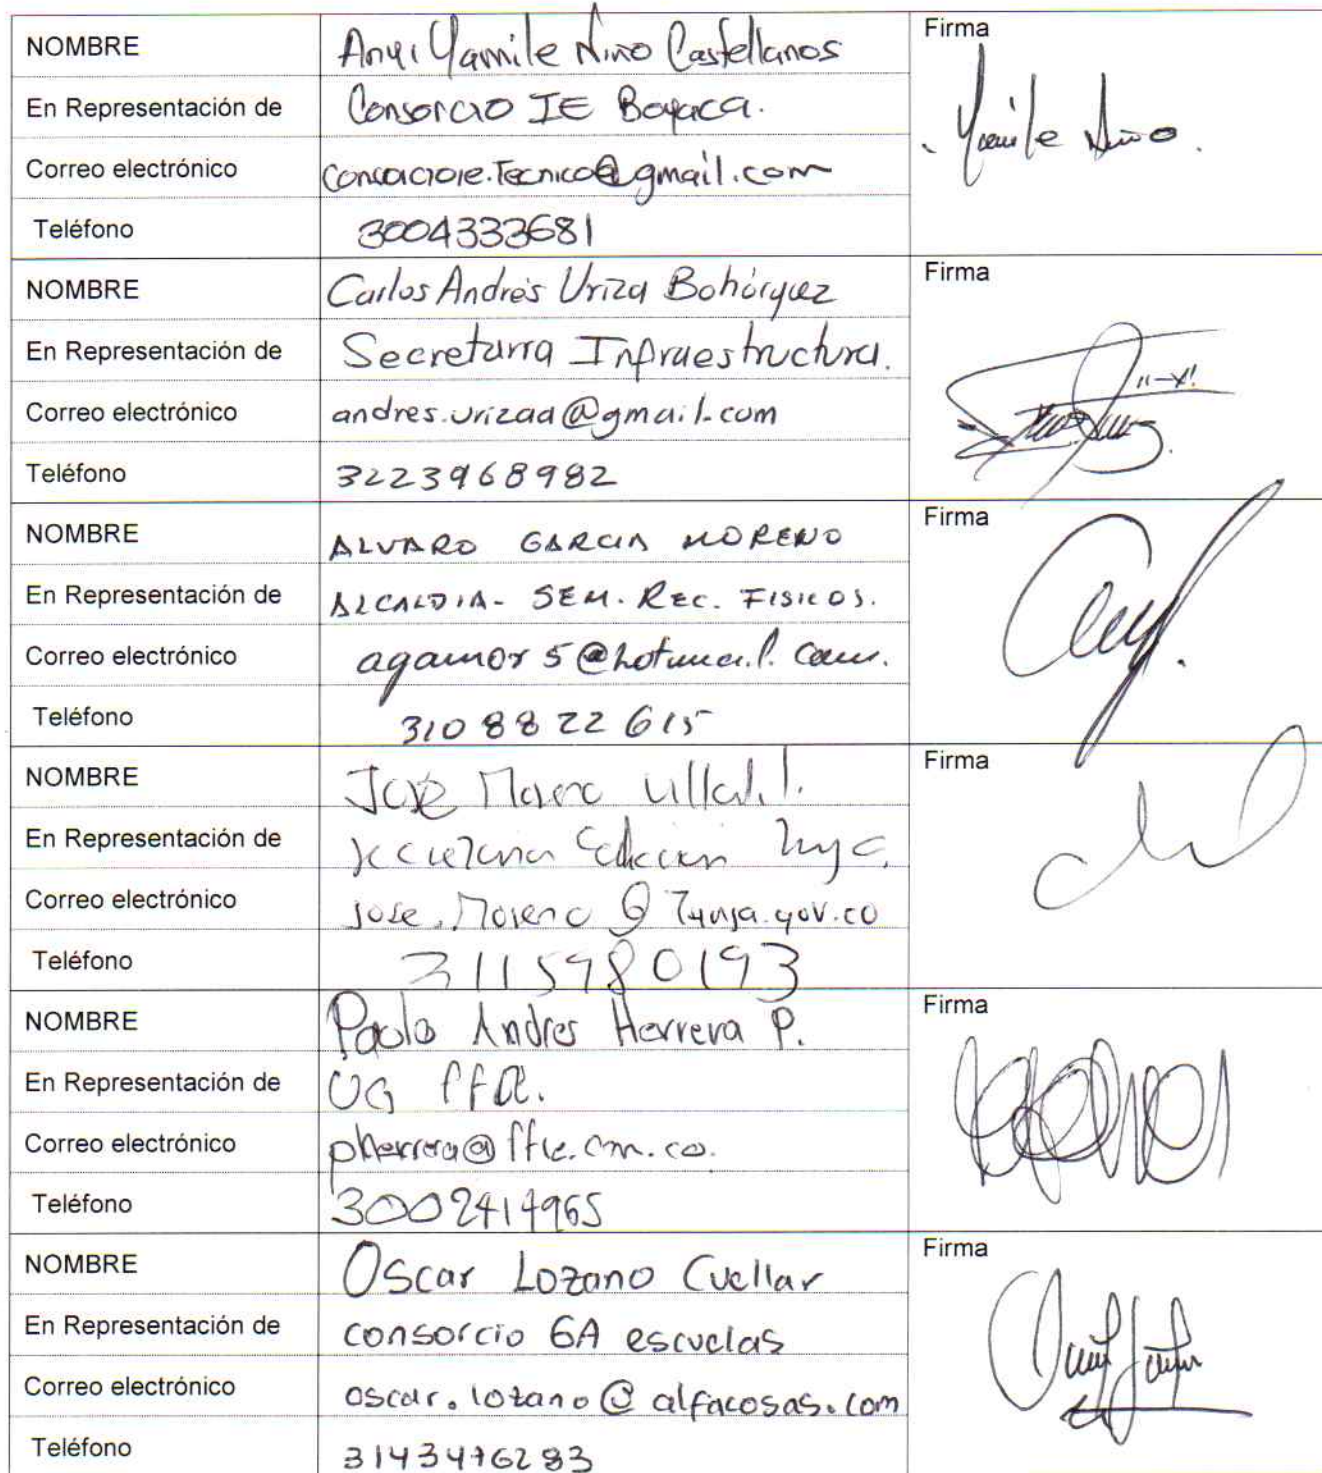 NOMBRE Anyi Yamile Nino Castellanos Firma
En Representación de Consorcio IE Boyaca.
Correo electrónico @gmail.com Yamile Niño.
Teléfono 3004333681
NOMBRE Carlos Andrés Uriza Bohórquez Firma
En Representación de Secretaria Infraestructura.
Correo electrónico andres.urizaa@gmail.com
Teléfono 3223968982
NOMBRE ALVARO GARCIA MORENO Firma
En Representación de ALCALDIA- SEM. REC. FISICOS.
Correo electrónico agamor5@hotmail.com.
Teléfono 310 88 22 615
NOMBRE José Moreno Firma
En Representación de Secretaria Educacion
Correo electrónico Jose.Moreno@Tunja.gov.co
Teléfono 3115980193
NOMBRE Paolo Andres Herrera P. Firma
En Representación de UG
Correo electrónico
Teléfono 3002414965
NOMBRE Oscar Lozano Cuellar Firma
En Representación de consorcio 6A escuelas
Correo electrónico oscar.lozano@alfacosas.com
Teléfono